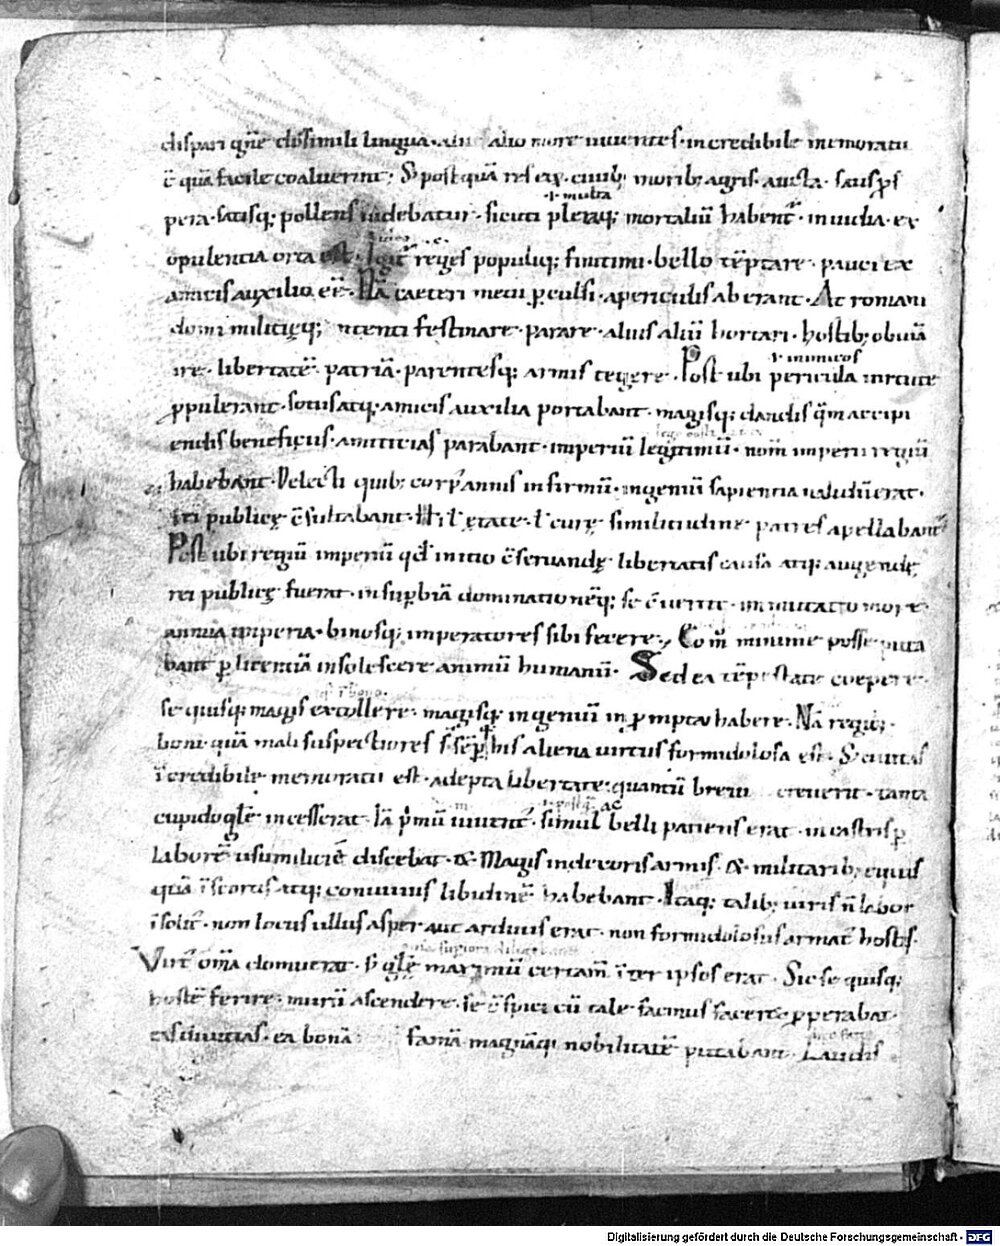 dispari gñe dissimili lingua · alio more uiuentes · incredibile memoratu
ē quā facile coaluerint; S; postquā res eoꝝ · ciuib; morib; agris · aucta · satis ꝓs
+ multa
pera · satisq; pollens uidebatur · sicuti pleraq; mortaliū habent̄ · inuidia · ex
opulentia orta est · Igit̄ reges populiq; finitimi · bello tēptare · pauci ex
amicis auxilio eē · Nā caeteri metu ꝑculsi · a periculis aberant · At romani
domi militięq; intenti festinare · parare · alius aliū hortari · hostib; obuiā
ł inimicos
ire · libertatē · patriā · parentesq; armis tegere · Post ubi pericula uirtute
ꝓpulerant · sociis atq; amicis auxilia portabant · magisq; dandis q̄m accipi
endis beneficiis · amiticias parabant · imperiū legitimū · nom̄ imperii regiū
habebant · Delecti quib; corp̄ annis infirmū · ingeniū sapientia ualidū erat ·
rei publicę cōsultabant · Hi ł ętate · ł curę similitudine patres apellabant̄
Post ubi regiū imperiū qđ initio cōseruandę libertatis causa atq; augendę
rei publicę fuerat · in suꝑbiā dominationēq; se cōuertit · inmutato more
annua imperia · binosq; imperatores sibi fecere; Eo m̄ minime posse puta
bant ꝑ licentiā insolescere animū humanū · Sed ea tēpestate coepere
.i. bono.
se quisq; magis extollere · magisq; ingeniū in ꝓmptu habere · Nā regib;
boni quā mali suspectiores s̄ · sēꝑ his aliena uirtus formidolosa est · S; ciuitas
īcredibile memoratu est · adepta libertate · quantū breui creuerit · tanta
ac
cupido głe incesserat · Iā p̄mū iuuent̄ · simul belli patiens erat · in castris ꝑ
laborē usu miliciē discebat · & Magis in decoris armis · & militarib; equis
quā ī scortis atq; conuiuiis libidinē habebant · Itaq; talib; uiris n̄ labor
īsolit̄ · non locus ullus asper aut arduus erat · non formidolosus armat̄ hostis ·
Virt̄ om̄a domuerat · S; głę maximū certam̄ īter ipsos erat · Sic se quisq;
hostē ferire · murū ascendere · se cōspici cū tale facinus faceret ꝓperabat ·
eas diuitias · ea bonā famā magnāq; nobilitatē putabant · Laudis